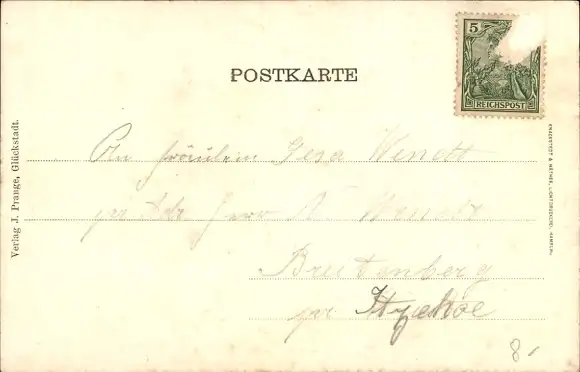 5
REICHSPOST
POSTKARTE
An Fräulein Gesa Wendt
pr Adr Herr Wendt
Breitenberg
per Itzehoe
8
Verlag J. Prange, Glückstadt.